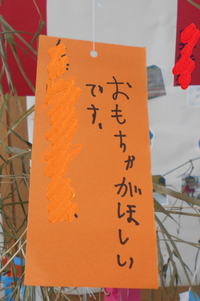 おもちゃがほしい
です。